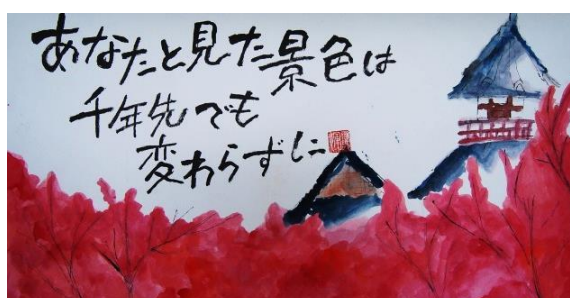 あなたと見た景色は
千年先でも
変わらずに